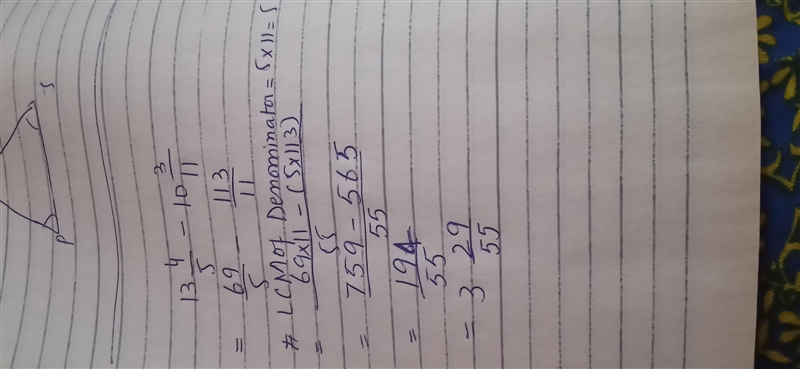 P S
13 4/5 - 10 3/11
= 69/5 - 113/11
* LCM of Denominator = 5x11 = 5
= 69x11 - (5x113) / 55
= 759 - 565 / 55
= 194/55
= 3 29/55